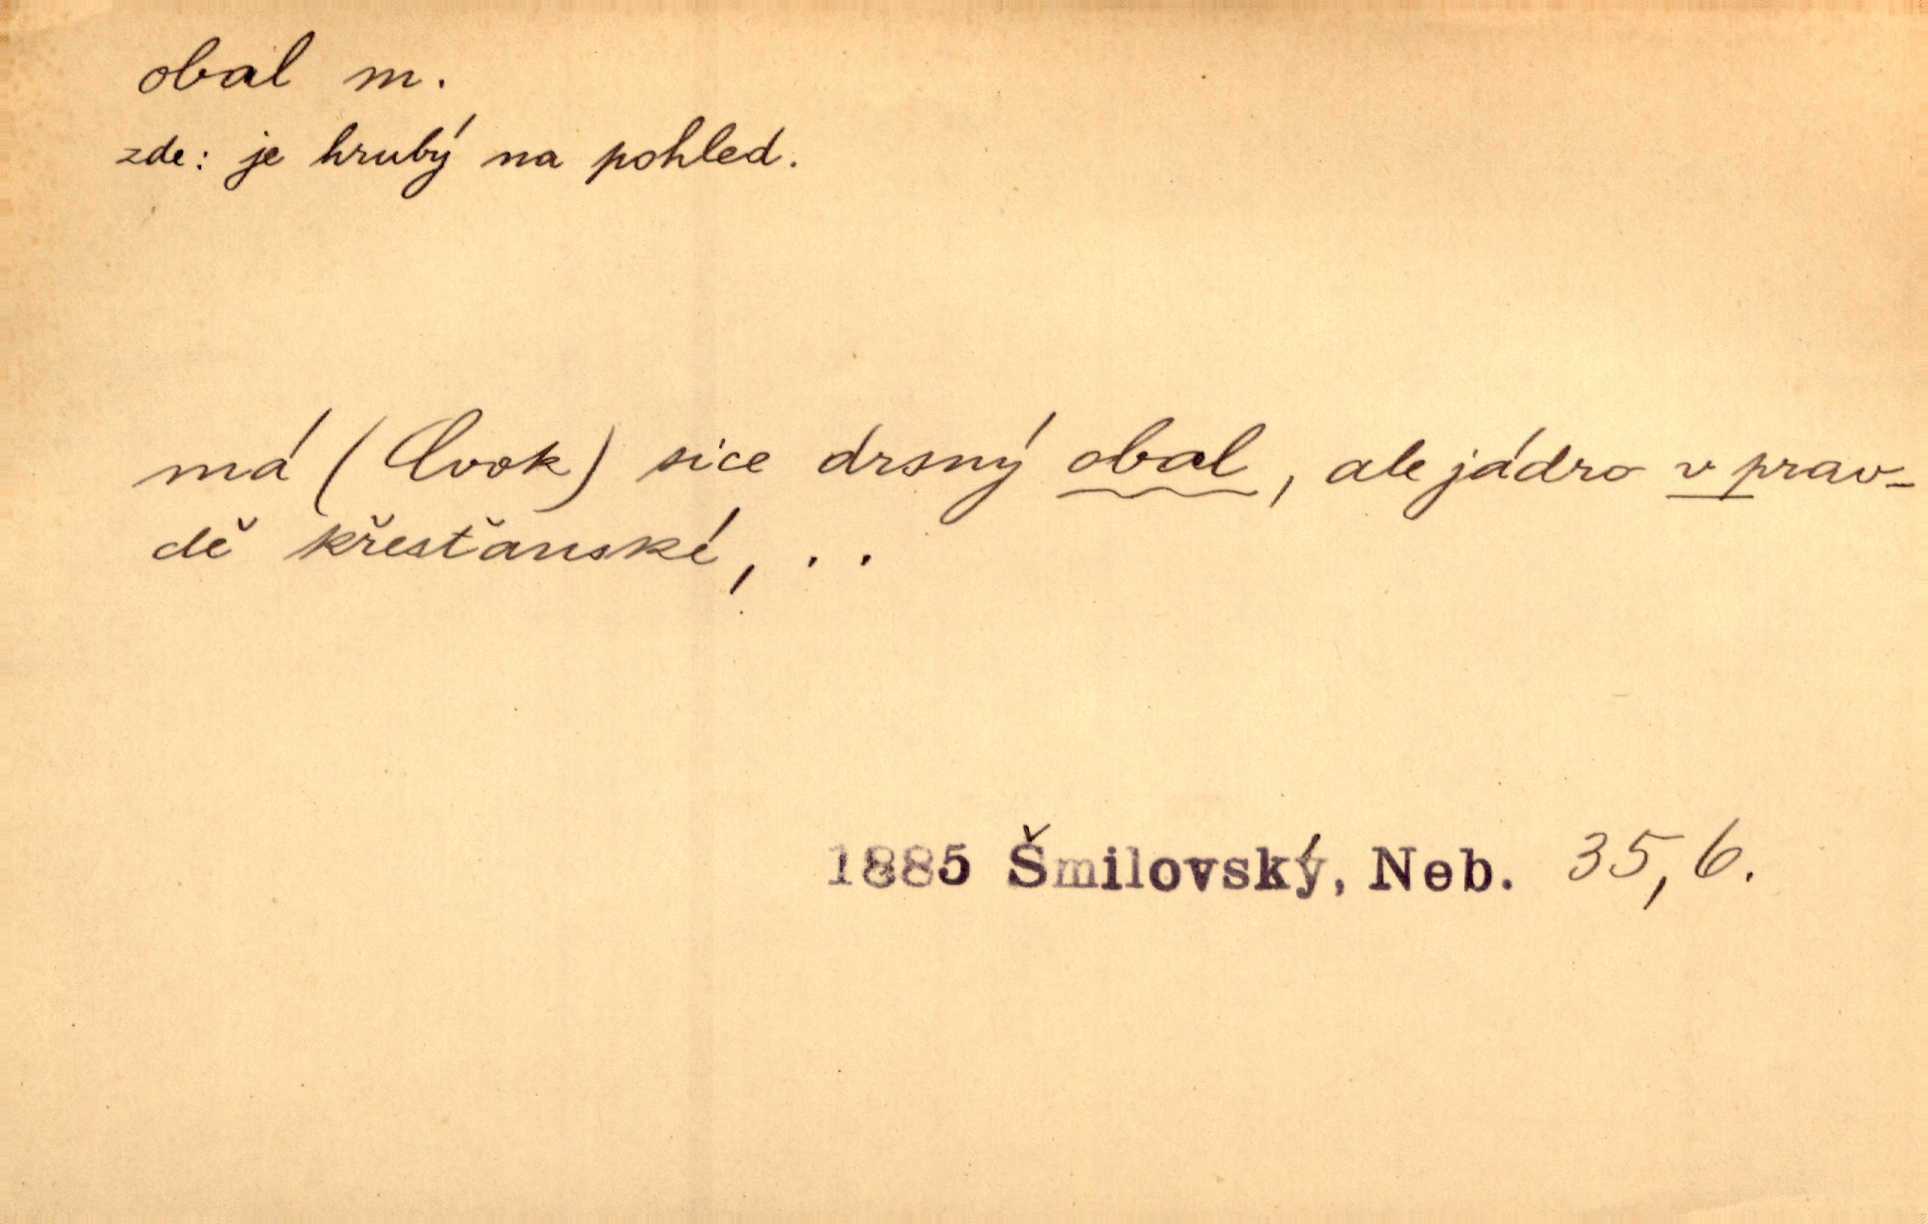 obal m.
zde: je hrubý na pohled.
má (Cvok) sice drsný obal, ale jádro v prav-
dě křesťanské, . .
1885 Šmilovský, Neb. 35,6.